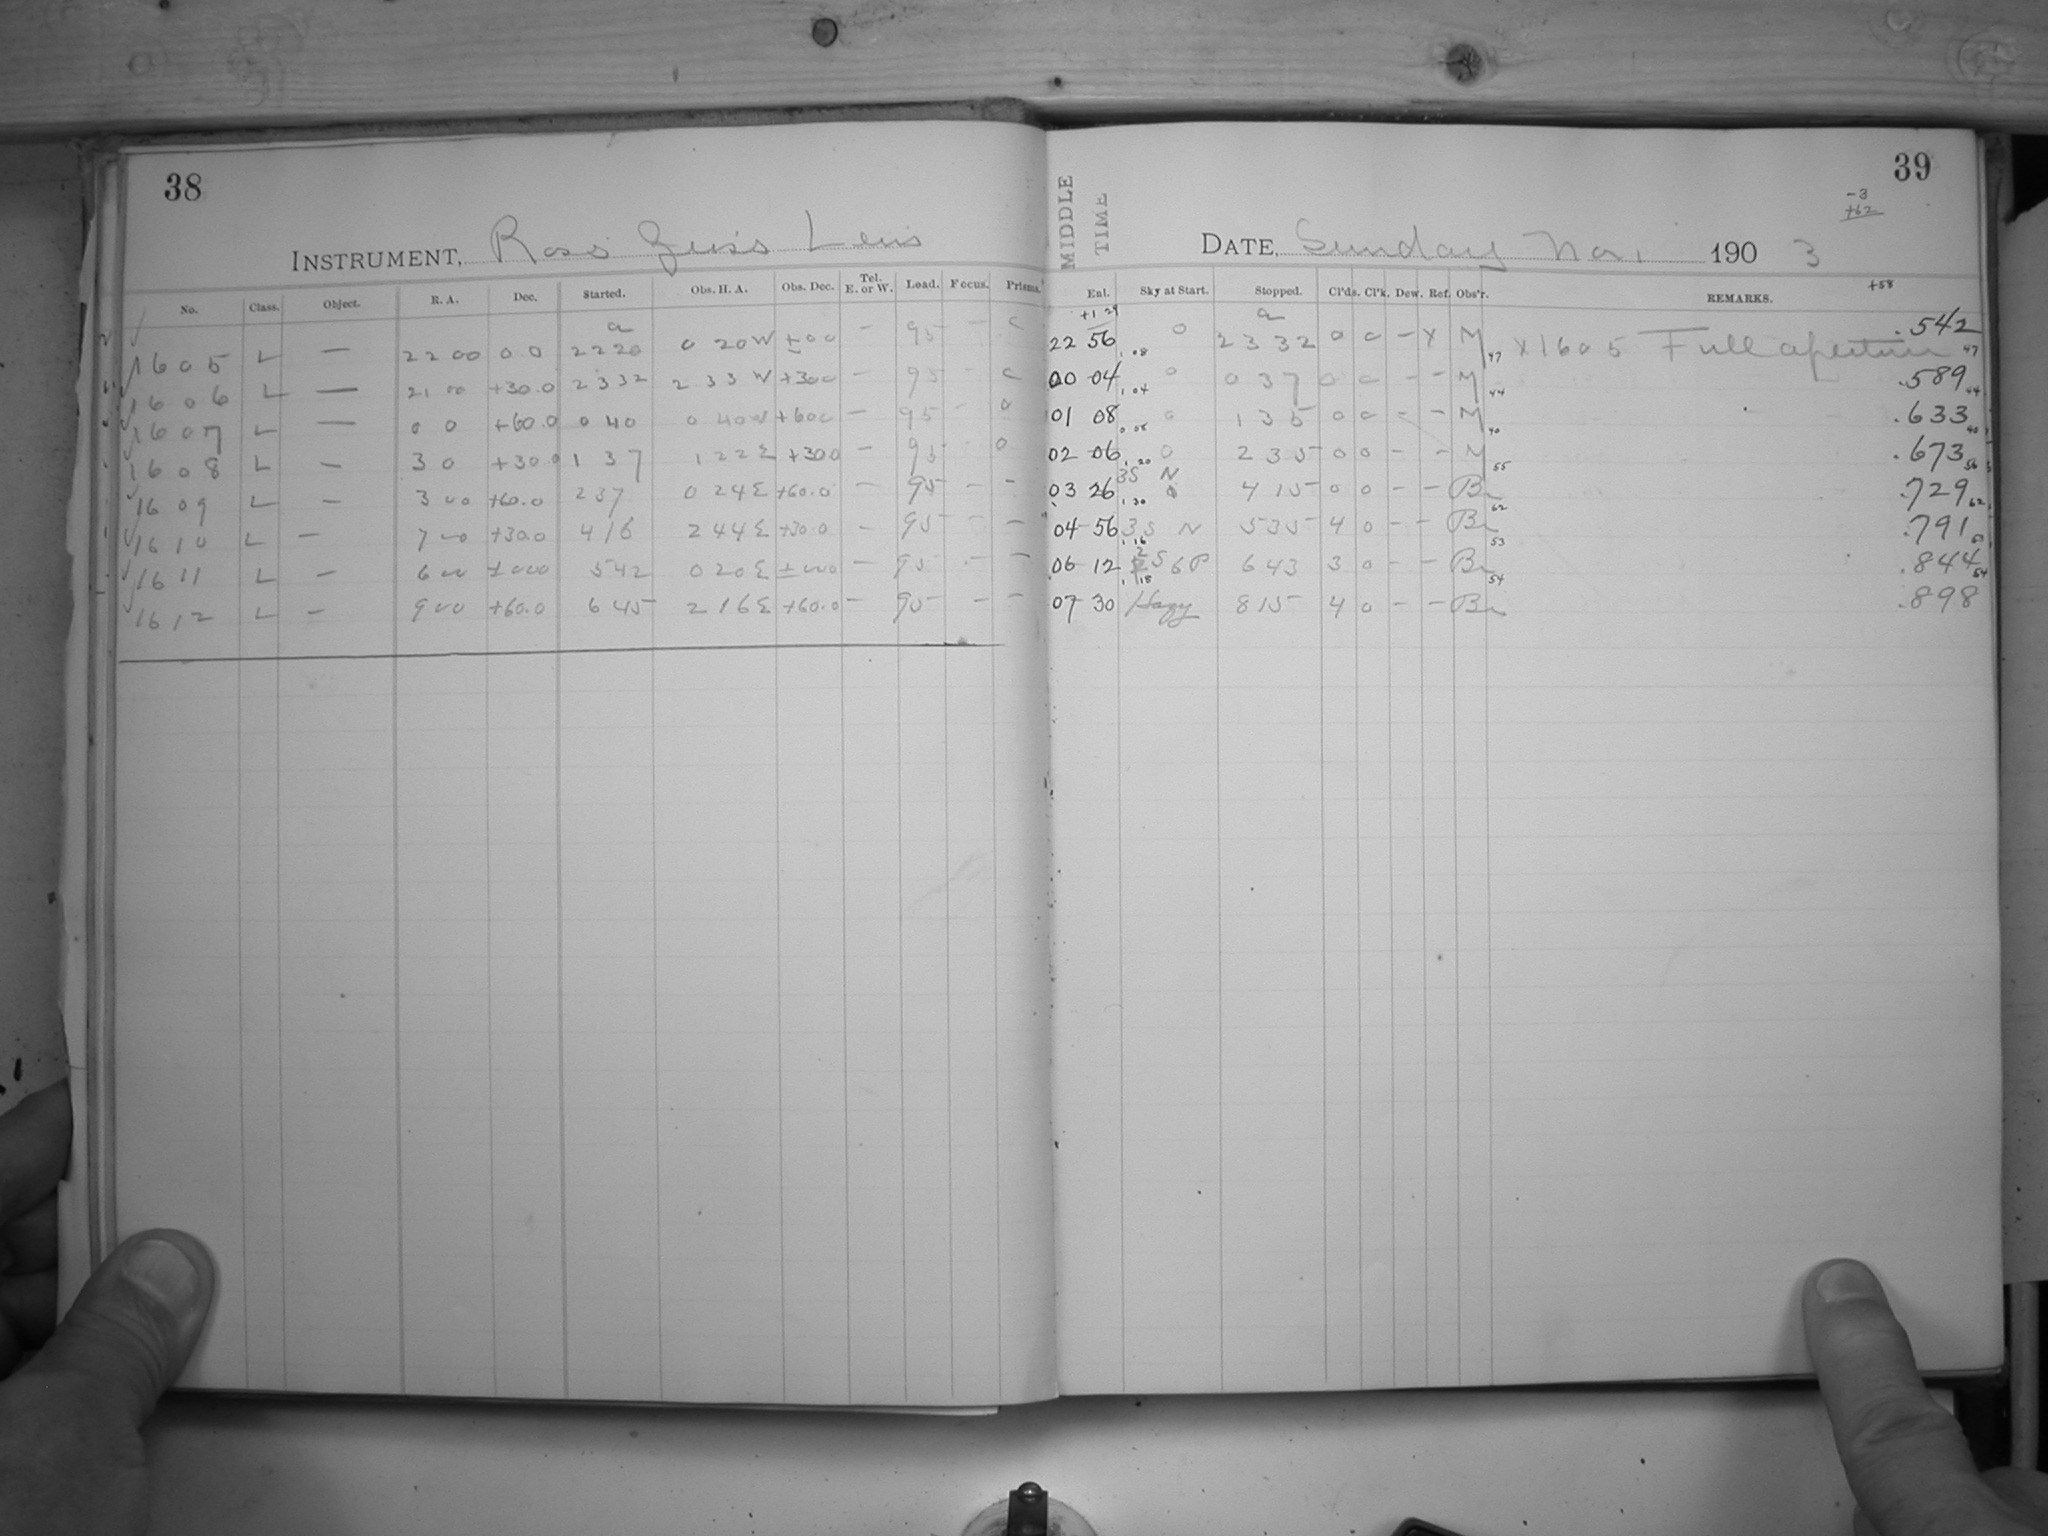 38
INSTRUMENT, Ross Zeiss Lens
No. Class. Object. R. A. Dec. Started. Obs. H. A. Obs. Dec. Tel. E. or W. Load. Focus. Prisms.
1605 L — 22 00 0 0 22 20 0 20 W ±00 — 95 — 0
1606 L — 21 00 +30.0 23 32 2 33 W +300 — 95 — 0
1607 L — 0 0 +60.0 0 40 0 40 W +600 — 95 - 0
1608 L — 3 0 +30.0 1 37 1 22 E +300 — 95 - 0
1609 L — 3 00 +60.0 2 37 0 24 E +60.0 — 95 — —
1610 L — 7 00 +30.0 4 16 2 44 E +30.0 — 95 — —
1611 L — 6 00 ±000 5 42 0 20 E ±000 — 95 — —
1612 L — 9 00 +60.0 6 45 2 16 E +60.0 — 95 — —
39
MIDDLE TIME
-3
+62
DATE, Sunday Nov. 1903
+58
Enl. Sky at Start. Stopped. Cl'ds. Cl'k. Dew. Ref. Obs'r. REMARKS.
+1 29
22 56 0 23 32 0 0 — X M X1605 Full aperture .542
1 08 47 47
00 04 0 0 37 0 0 — — M .589
1 04 44 44
01 08 0 1 35 0 0 — — M .633
40 40
02 06 0 2 35 0 0 — — M .673
1 20 55 56
03 26 3S N 4 15 0 0 — — Br .729
1 30 62 62
04 56 3S N 5 35 4 0 — — Br .791
1 16 53 53
06 12 2S 6P 6 43 3 0 — — Br .844
1 18 54 54
07 30 Hazy 8 15 4 0 — — Br .898